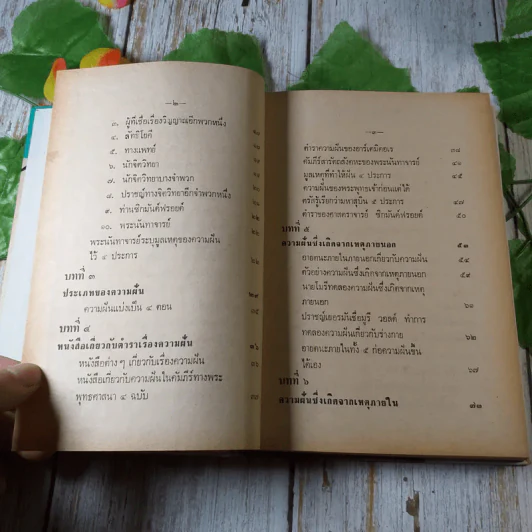 —๒—
๓. ผู้ที่เชื่อเรื่องวิญญาณอีกพวกหนึ่ง
๔. ลัทธิโยคี
๕. ทางแพทย์
๖. นักจิตวิทยา
๗. นักจิตวิทยาบางจำพวก
๘. ปราชญ์ทางจิตวิทยาอีกจำพวกหนึ่ง
๙. ท่านซิกมันด์ฟรอยด์
๑๐. พระนันทาจารย์
พระนันทาจารย์ระบุมูลเหตุของความฝัน
ไว้ ๔ ประการ
บทที่ ๓
ประเภทของความฝัน
ความฝันแบ่งเป็น ๔ ตอน
บทที่ ๔
หนังสือเกี่ยวกับตำราเรื่องความฝัน
หนังสือต่าง ๆ เกี่ยวกับเรื่องความฝัน
หนังสือเกี่ยวกับความฝันในคัมภีร์ทางพระ
พุทธศาสนา ๔ ฉบับ
—๓—
ตำราความฝันของอาร์เตมิดอเร ๓๘
คัมภีร์สารัตถะสังคหะของพระนันทาจารย์ ๔๐
มูลเหตุที่ทำให้ฝัน ๔ ประการ ๔๕
ความฝันของพระพุทธเจ้าก่อนแต่ได้
ตรัสรู้เรียกว่ามหาสุบิน ๕ ประการ ๔๗
ตำราของศาสตราจารย์ ซิกมันด์ฟรอยด์ ๕๐
บทที่ ๕
ความฝันซึ่งเกิดจากเหตุภายนอก ๕๓
อายตนะภายในภายนอกเกี่ยวกับความฝัน ๕๔
ตัวอย่างความฝันซึ่งเกิดจากเหตุภายนอก ๕๙
นายโมรีทดลองความฝันซึ่งเกิดจากเหตุ
ภายนอก ๖๒
ปราชญ์เยอรมันชื่อมูรี วอลด์ ทำการ
ทดลองความฝันเกี่ยวกับร่างกาย ๖๔
อายตนะภายในทั้ง ๕ ก่อความฝันขึ้น
ได้เอง ๖๗
บทที่ ๖
ความฝันซึ่งเกิดจากเหตุภายใน ๗๓